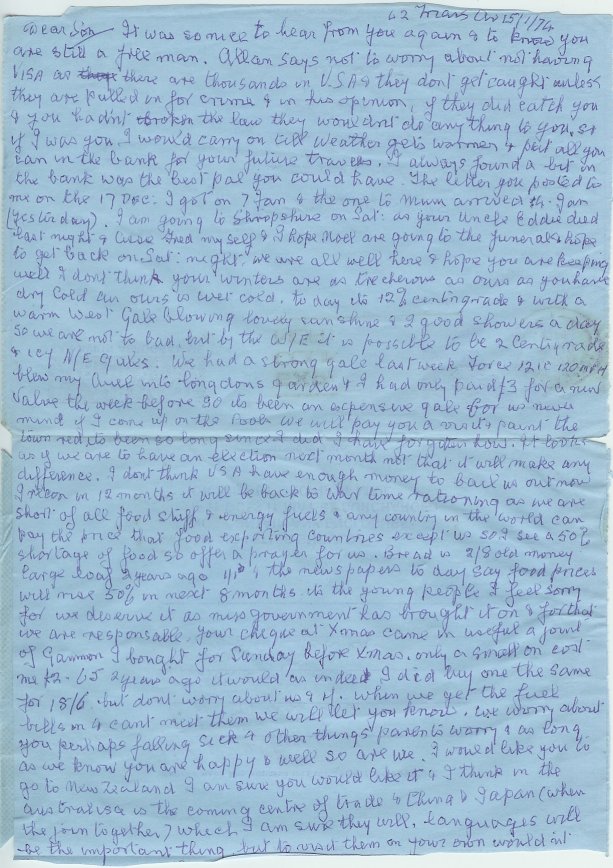 62 Frans Av 15/1/74
Dear Son It was so nice to hear from you again & to know you
are still a free man. Allan says not to worry about not having
VISA as there are thousands in U.S.A & they dont get caught unless
they are pulled in for crime & in his opinion, if they did catch you
& you hadnt broken the law they wouldnt do any thing to you, so
if I was you I would carry on till weather gets warmer & put all you
can in the bank for your future travels. I always found a bit in
the bank was the best pal you could have. The letter you posted to
me on the 17 Dec. I got on 7 Jan & the one to mum arrived 14. Jan
(yesterday). I am going to Shropshire on Sat: as your Uncle Eddie died
last night & Fred my self & I hope Noel are going to the funeral & hope
to get back on Sat: night. we are all well here & hope you are keeping
well I dont think your winters are as trecherous as ours as you have
dry cold an ours is wet cold, to day its 12% centingrade & with a
warm West Gale blowing lovely sunshine & 2 good showers a day
so we are not to bad, but by the W/E it is possible to be 2 Centigrade
& icy N/E Gales. We had a strong gale last week Force 12 ie 120 mPH
blew my into Longdons garden & I had only paid £3 for a new
Valve the week before so its been an expensive gale for us never
mind if I come up on the Pools we will pay you a visit & paint the
town red its been so long since I did I have forgotten how. It looks
as if we are to have an election next month not that it will make any
difference. I dont think USA have enough money to bail us out now
I recon in 12 months it will be back to War time rationing as we are
short of all food stuff & energy fuels & any country in the world can
pay the price that food exporting countries except us so I see a 50%
shortage of food so offer a prayer for us. Bread is 2/8 old money
large loaf 2 years ago & the newspapers to day say food prices
will rise 50% in next 8 months. its the young people I feel sorry
for we deserve it as miss government has brought it on & for that
we are responsable. Your cheque at Xmas came in useful a joint
of Gammon I bought for Sunday before Xmas. only a small on cost
me £2-65 2 years ago it would as indeed I did buy one the same
for 18/6. but dont worry about us 4 if. when we get the fuel
bills in & cant meet them we will let you know. we worry about
you perhaps falling sick & other things parents worry & as long
as we know you are happy & well so are we. I would like you to
go to New Zealand I am sure you would like it & I think in the
australasia is the coming centre of trade & China & Japan (when
the join together) which I am sure they will, languages will
be the important thing but to visit them on your own would int